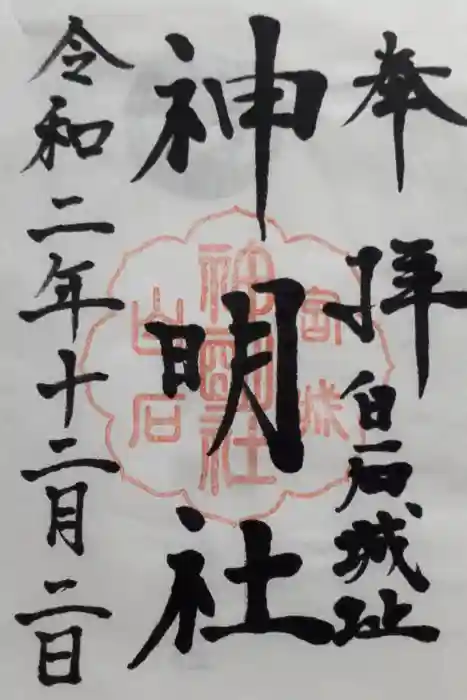 奉拝
白石城址
神明社
令和二年十二月二日
神明社
白石